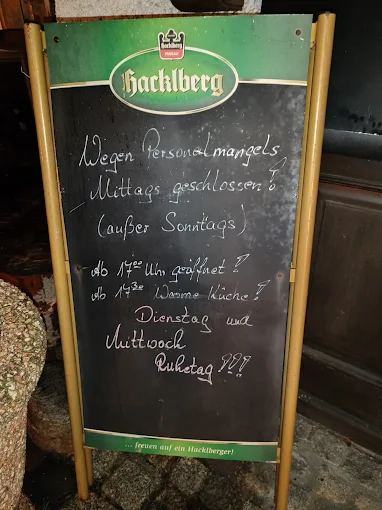 Hacklberg
PASSAU
Hacklberg
Wegen Personalmangels
Mittags geschlossen!
(außer Sonntags)
Ab 17⁰⁰ Uhr geöffnet!
Ab 17³⁰ Warme Küche!
Dienstag und
Mittwoch
Ruhetag!!!
... freuen auf ein Hacklberger!